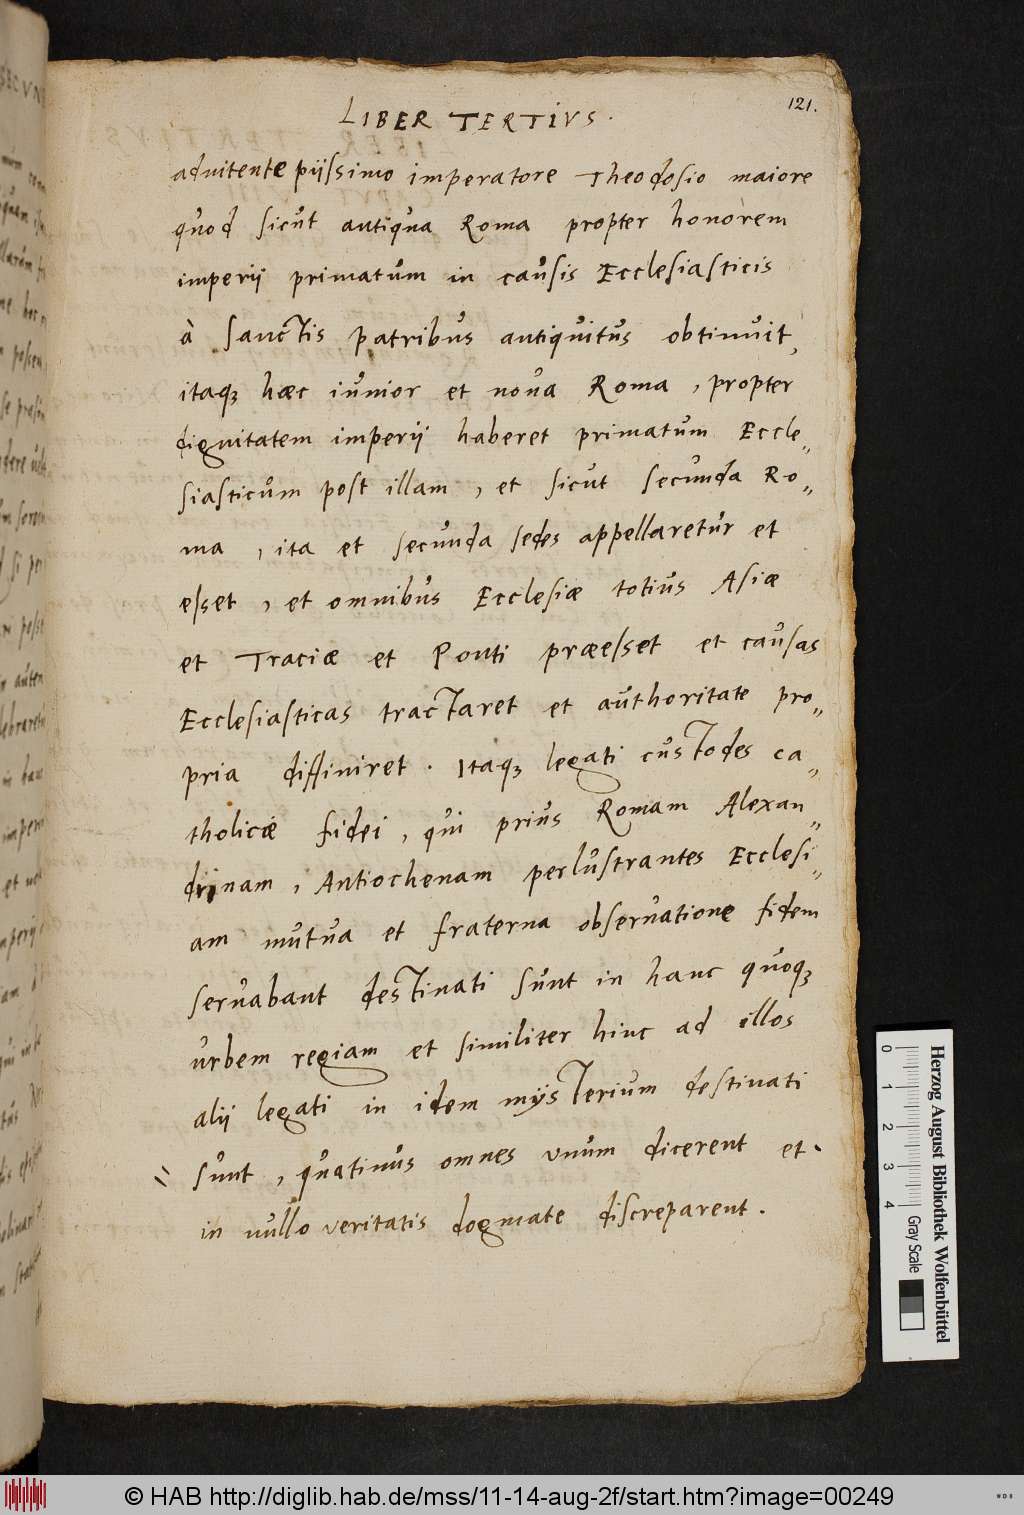 121.
LIBER TERTIVS.
aduitente piissimo imperatore Theodosio maiore
quod sicut antiqua Roma propter honorem
imperij primatum in causis Ecclesiasticis
à sanctis patribus antiquitus obtinuit,
itaqꝫ hæc iunior et noua Roma, propter
dignitatem imperij haberet primatum Eccle„
siasticum post illam, et sicut secunda Ro„
ma, ita et secunda sedes appellaretur et
esset, et omnibus Ecclesiæ totius Asiæ
et Traciæ et Ponti præesset et causas
Ecclesiasticas tractaret et authoritate pro„
pria diffiniret. Itaqꝫ legati custodes ca„
tholicæ fidei, qui prius Romam Alexan„
drinam, Antiochenam perlustrantes Ecclesi„
am mutua et fraterna obseruatione fidem
seruabant destinati sunt in hanc quoqꝫ
urbem regiam et similiter hinc ad illos
alij legati in idem mijsterium destinati
sunt, quatinus omnes unum dicerent et
in nullo veritatis dogmate discreparent.
Herzog August Bibliothek Wolfenbüttel
0 1 2 3 4 Gray Scale
© HAB http://diglib.hab.de/mss/11-14-aug-2f/start.htm?image=00249